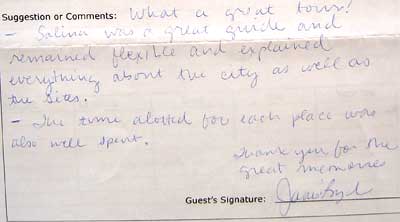 Suggestion or Comments: What a great tour!
- Salina was a great guide and
remained flexible and explained
everything about the city as well as
the sites.
- The time alotted for each place was
also well spent.
Thank you for the
great memories
Guest's Signature: